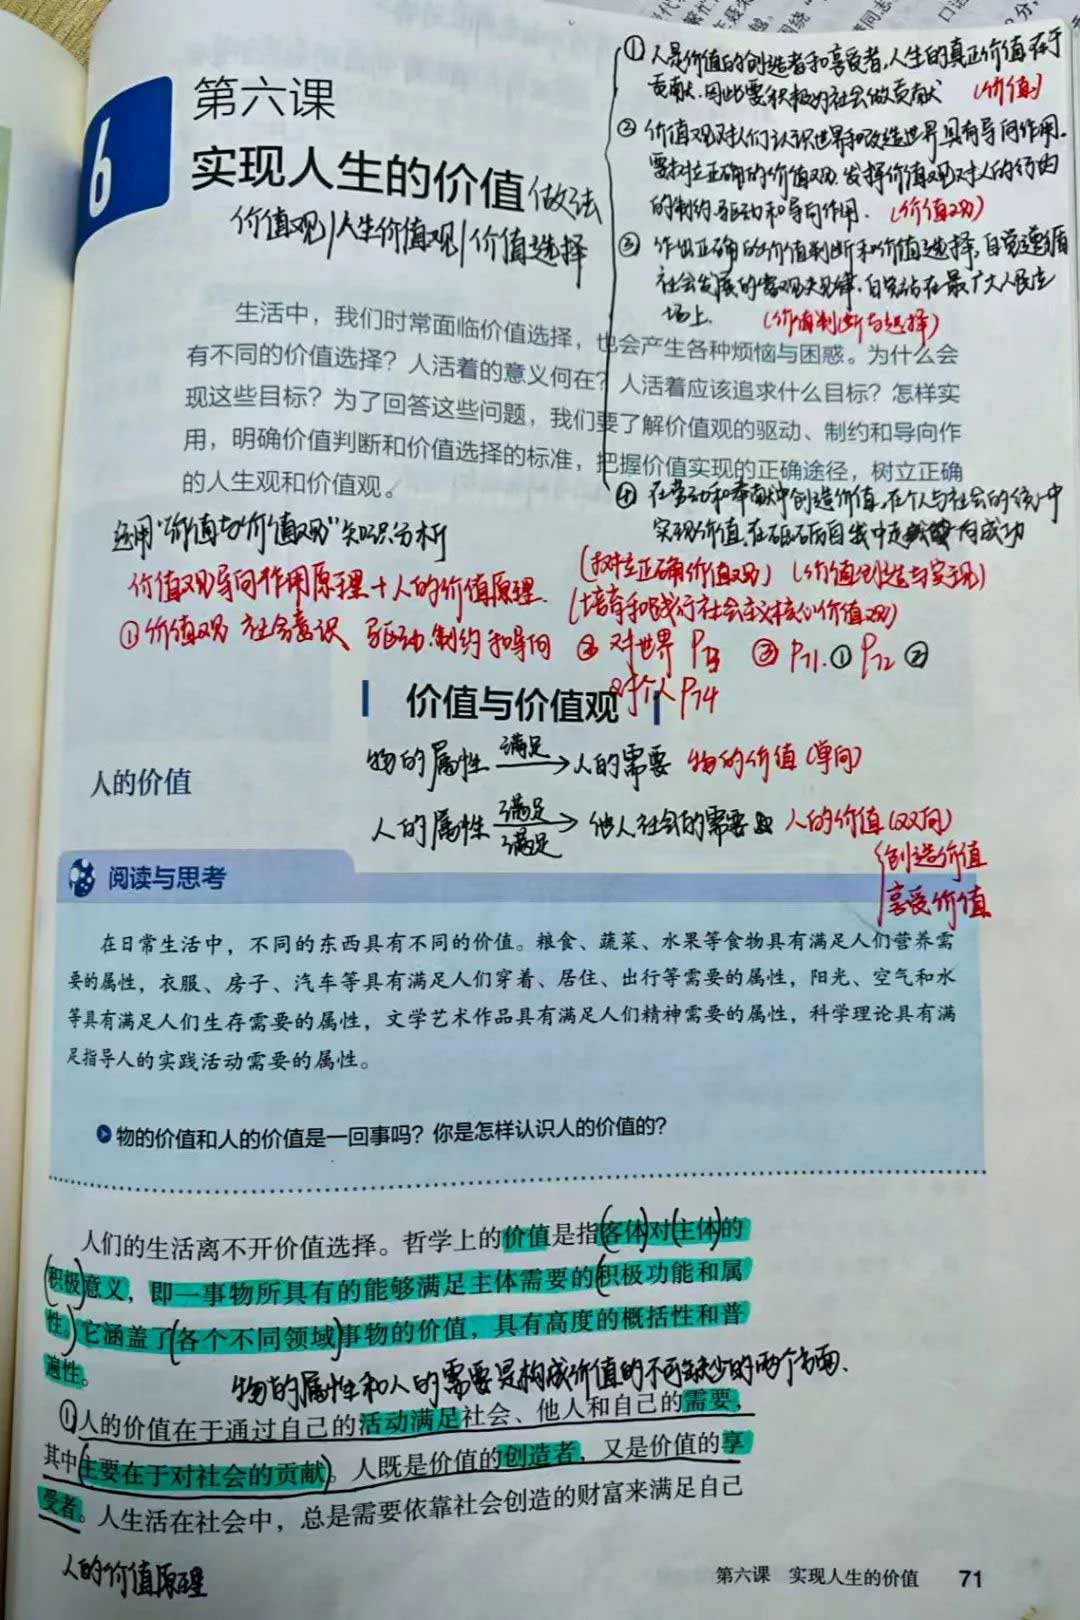 6
第六课
实现人生的价值 做法
价值观/人生价值观/价值选择
①人是价值的创造者和享受者,人生的真正价值在于
贡献.因此要积极为社会做贡献 (价值)
②价值观对人们认识世界和改造世界具有导向作用.
要树立正确的价值观.发挥价值观对人的行为
的制约.驱动和导向作用. (价值观)
③作出正确的价值判断和价值选择,自觉遵循
社会发展的客观规律,自觉站在最广大人民立
场上. (价值判断与选择)
生活中,我们时常面临价值选择,也会产生各种烦恼与困惑。为什么会
有不同的价值选择?人活着的意义何在?人活着应该追求什么目标?怎样实
现这些目标?为了回答这些问题,我们要了解价值观的驱动、制约和导向作
用,明确价值判断和价值选择的标准,把握价值实现的正确途径,树立正确
的人生观和价值观。
④在劳动和奉献中创造价值,在个人与社会的统一中
实现价值,在砥砺自我中走向成功
(树立正确价值观) (价值创造与实现)
(培育和践行社会主义核心价值观)
运用“价值与价值观”知识分析
价值观导向作用原理+人的价值原理.
①价值观 社会意识 驱动.制约和导向 ②对世界 P73 ③P71.① P72②
对个人P74
价值与价值观
物的属性 满足→人的需要 物的价值(单向)
人的价值
人的属性 满足 满足→他人社会的需要 人的价值(双向)
创造价值
享受价值
阅读与思考
在日常生活中,不同的东西具有不同的价值。粮食、蔬菜、水果等食物具有满足人们营养需
要的属性,衣服、房子、汽车等具有满足人们穿着、居住、出行等需要的属性,阳光、空气和水
等具有满足人们生存需要的属性,文学艺术作品具有满足人们精神需要的属性,科学理论具有满
足指导人的实践活动需要的属性。
物的价值和人的价值是一回事吗?你是怎样认识人的价值的?
人们的生活离不开价值选择。哲学上的价值是指(客体)对(主体)的
(积极)意义,即一事物所具有的能够满足主体需要的(积极功能和属
性。)它涵盖了(各个不同领域)事物的价值,具有高度的概括性和普
遍性。
物的属性和人的需要是构成价值的不可缺少的两个方面.
①人的价值在于通过自己的活动满足社会、他人和自己的需要,
其中(主要在于对社会的贡献)。人既是价值的创造者,又是价值的享
受者。人生活在社会中,总是需要依靠社会创造的财富来满足自己
人的价值原理
第六课 实现人生的价值 71